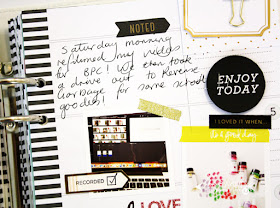 NOTED
Saturday morning
refilmed my video
for BPC! We then took
a drive out to Reverse
Garbage for some school
goodies!
ENJOY
TODAY
I LOVED IT WHEN...
5
RECORDED
I LOVE